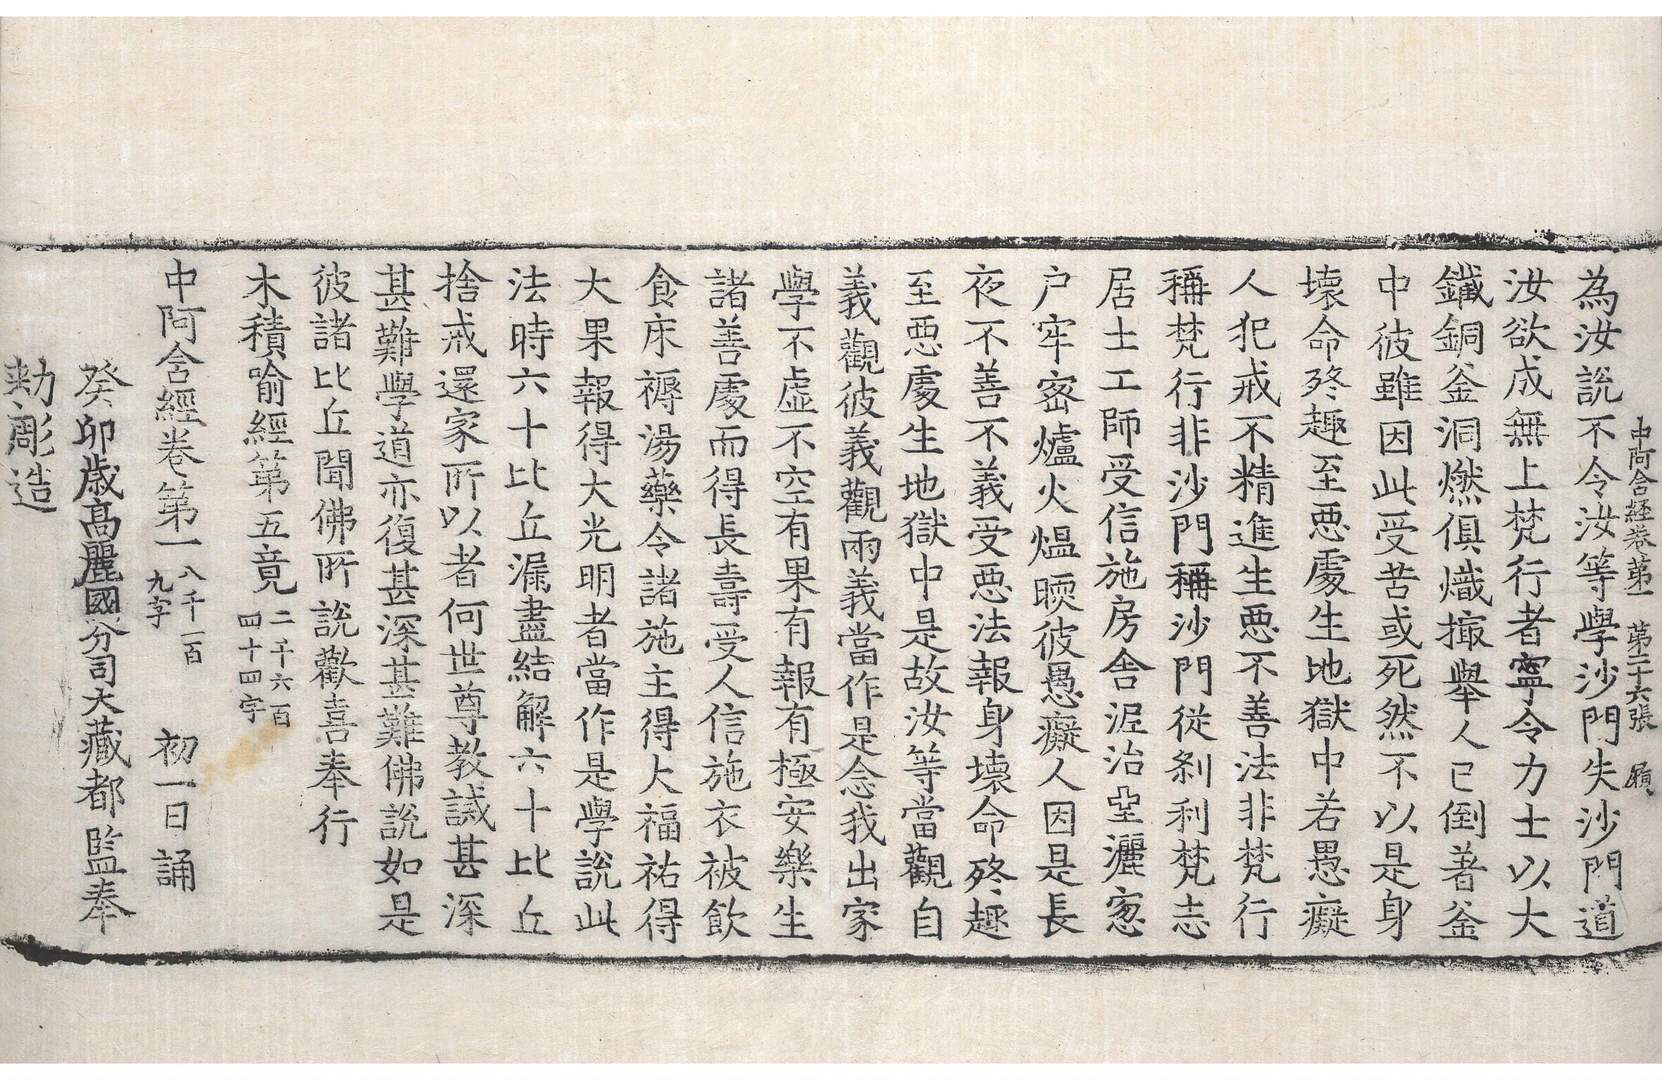 中阿含經卷第一　第二十六張　願
為汝說不令汝等學沙門失沙門道
汝欲成無上梵行者寧令力士以大
鐵銅釜洞燃俱熾撮舉人已倒著釜
中彼雖因此受苦或死然不以是身
壞命終趣至惡處生地獄中若愚癡
人犯戒不精進生惡不善法非梵行
稱梵行非沙門稱沙門從剎利梵志
居士工師受信施房舍泥治堊灑窓
戶牢密爐火熅暖彼愚癡人因是長
夜不善不義受惡法報身壞命終趣
至惡處生地獄中是故汝等當觀自
義觀彼義觀兩義當作是念我出家
學不虛不空有果有報有極安樂生
諸善處而得長壽受人信施衣被飲
食床褥湯藥令諸施主得大福祐得
大果報得大光明者當作是學說此
法時六十比丘漏盡結解六十比丘
捨戒還家所以者何世尊教誡甚深
甚難學道亦復甚深甚難佛說如是
彼諸比丘聞佛所說歡喜奉行
木積喻經第五竟　二千六百四十四字
中阿含經卷第一　八千一百九字　初一日誦
癸卯歲高麗國分司大藏都監奉
勅彫造